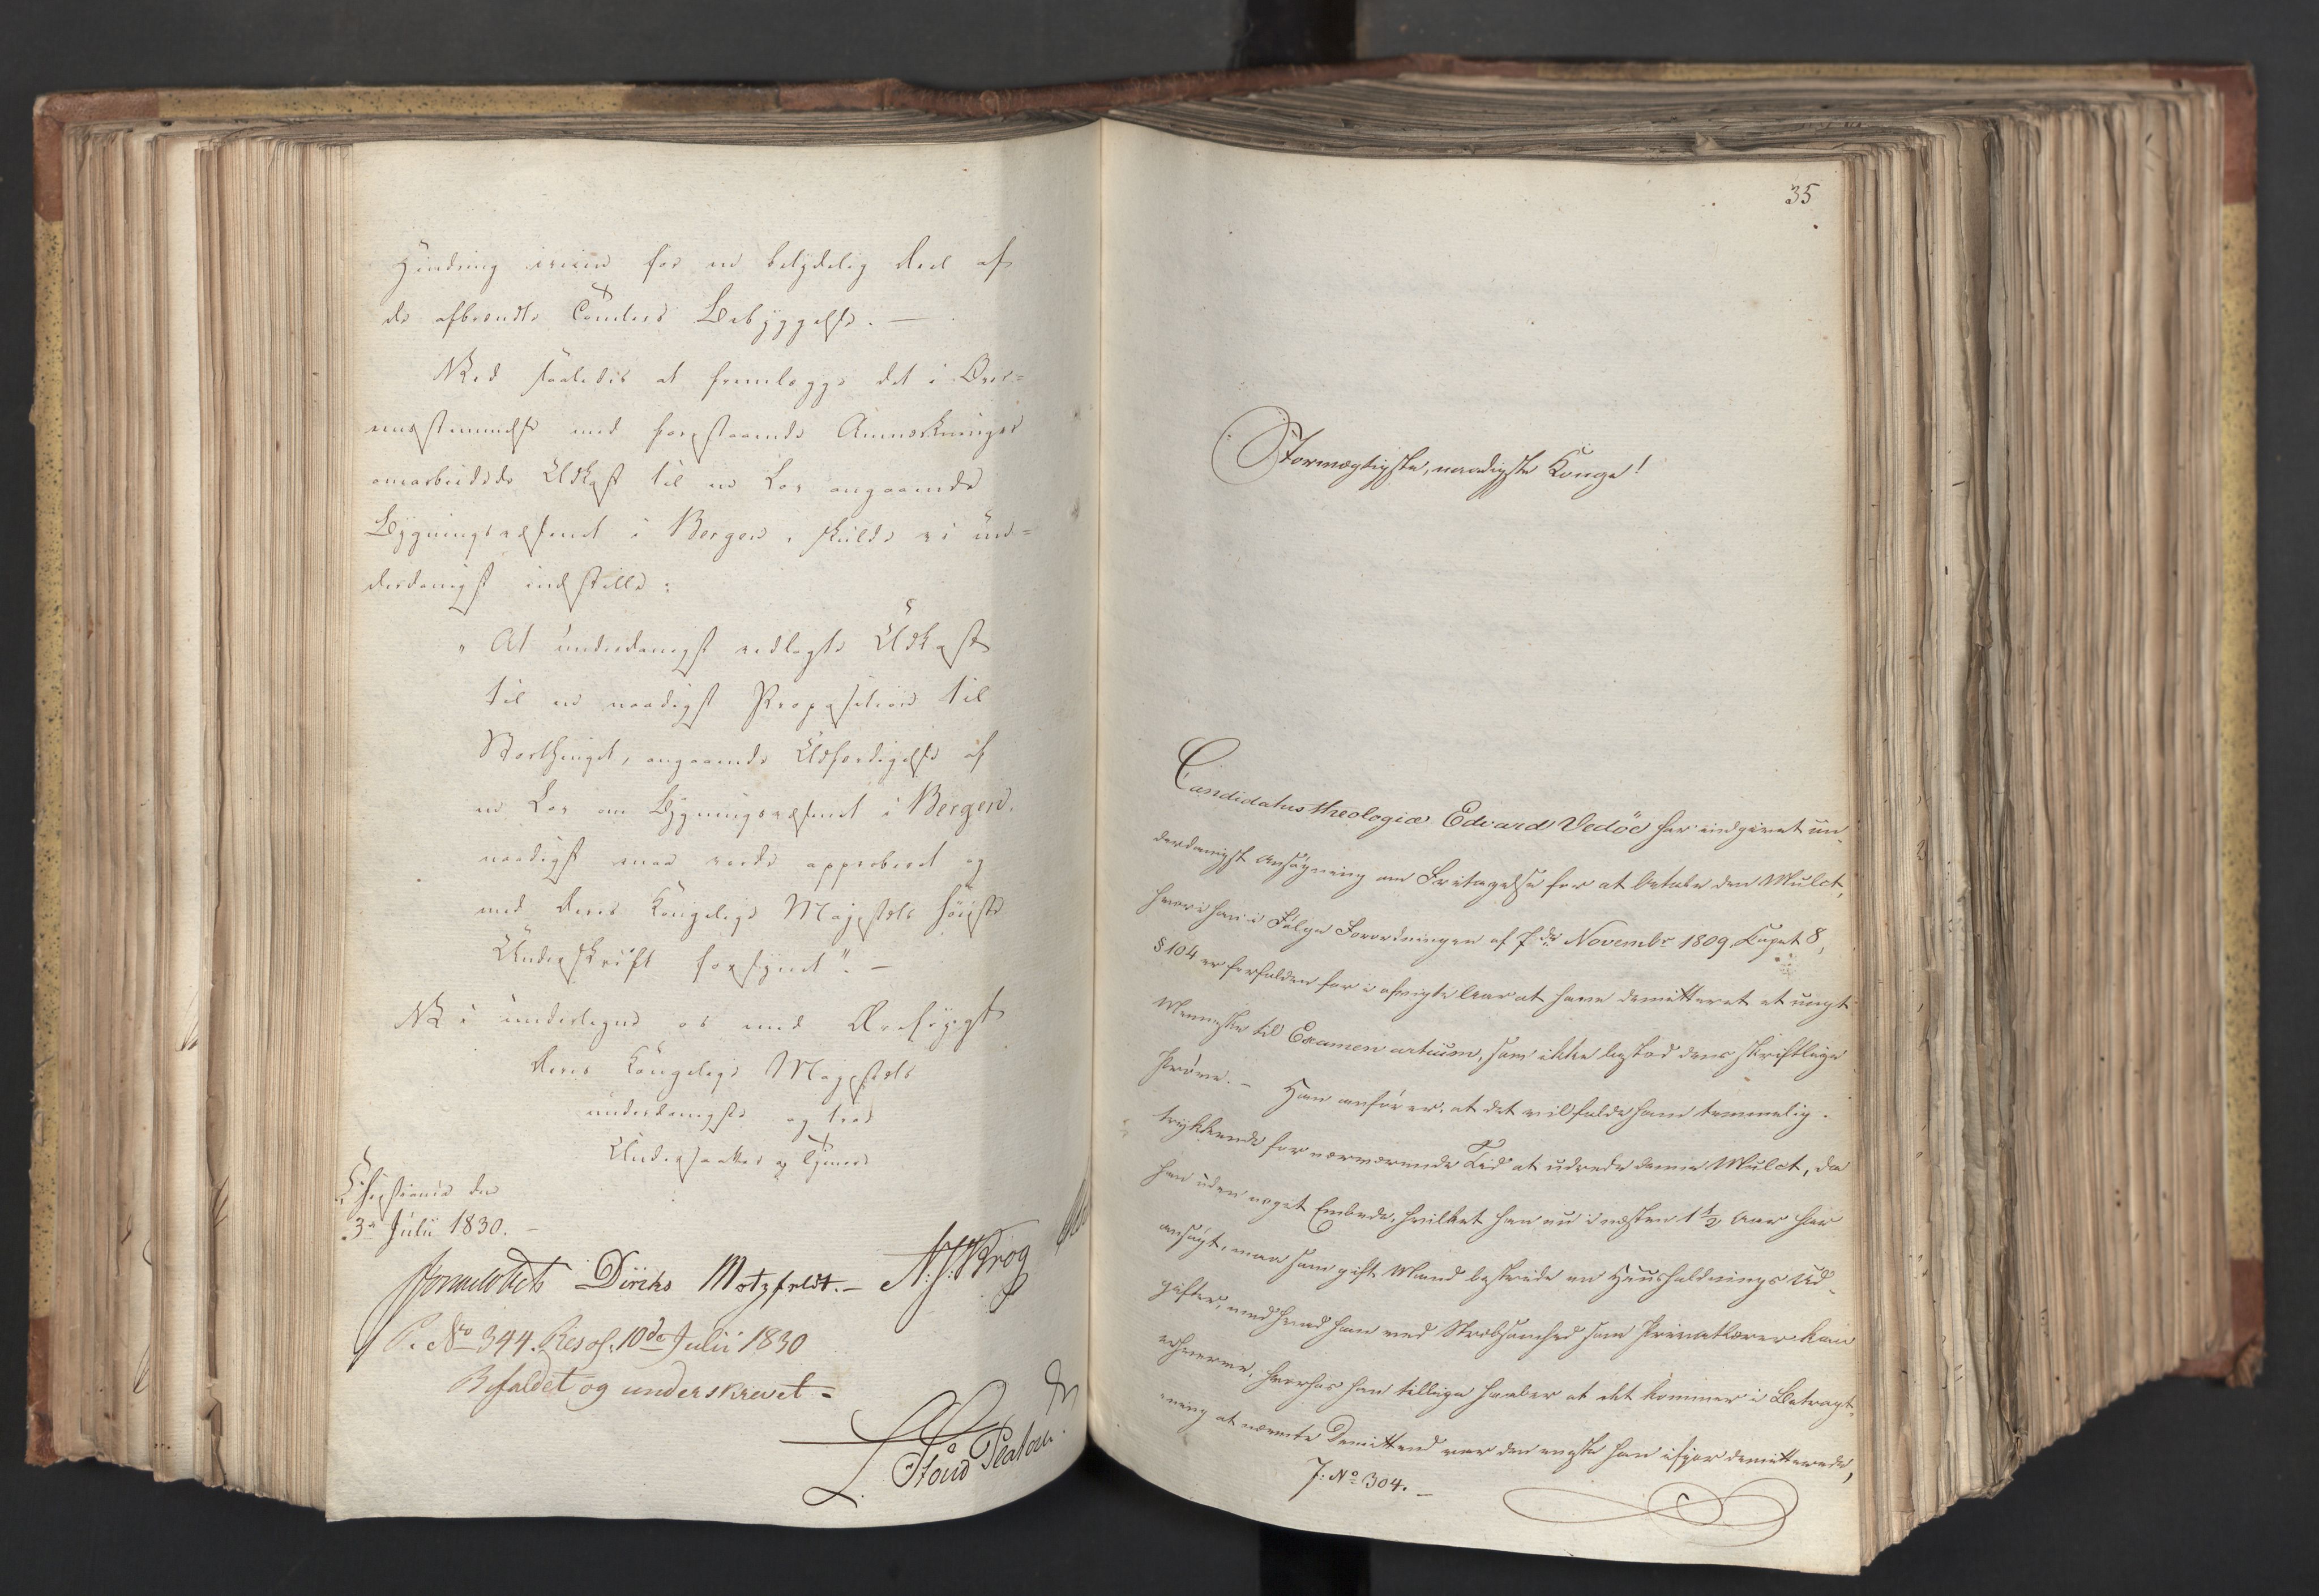 Hindring iveien for en betydelig Deel af
de afbrændte Tomters Bebyggelse. —
Ved saaledes at fremlægge det i Over=
eensstemmelse med forestaaende Anmærkninger
omarbeidede Udkast til en Lov angaaende
Bygningsvæsenet i Bergen, skulde vi un=
derdanigst indstille:
„At underdanigst vedlagte Udkast
til en naadigst Proposition til
Storthinget, angaaende Udfærdigelse af
en Lov om Bygningsvæsenet i Bergen,
naadigst maa vorde approberet og
med Deres Kongelige Majestets høieste
Underskrift forsynet". —
Vi undertegne os med Ærefrygt
Deres Kongelige Majestets
underdanigste og troe
Undersaatter og Tjenere
Christiania den
3die Julii 1830. —
Diriks Motzfeldt. — N. J. Krog
P. No 344. Resol. 10de Julii 1830
Bifaldet og underskrevet =
35
Stormægtigste, naadigste Konge!
Candidatus theologiæ Edvard Vedöe har indgivet un-
derdanigst Ansøgning om Fritagelse for at betale den Mulct,
hvori han i Følge Forordningen af 7de Novembr 1809, Capt 8,
§ 104 er forfalden for i afvigte Aar at have demitteret et ungt
Menneske til Examen artium, som ikke bestod dens skriftlige
Prøve. – Han anfører, at det vil falde ham temmelig
trykkende for nærværende Tid at udrede denne Mulct, da
han uden noget Embede, hvilket han nu i næsten 1½ Aar har
ansøgt, maa som gift Mand bestride en Huusholdnings Ud-
gifter, med hvad han ved Strebsomhed som Privatlærer kan
erhverve, hvorhos han tillige haaber at det kommer i Betragt-
ning at nævnte Demittend var den eneste han ifjor demitterede,
J: No 304. —